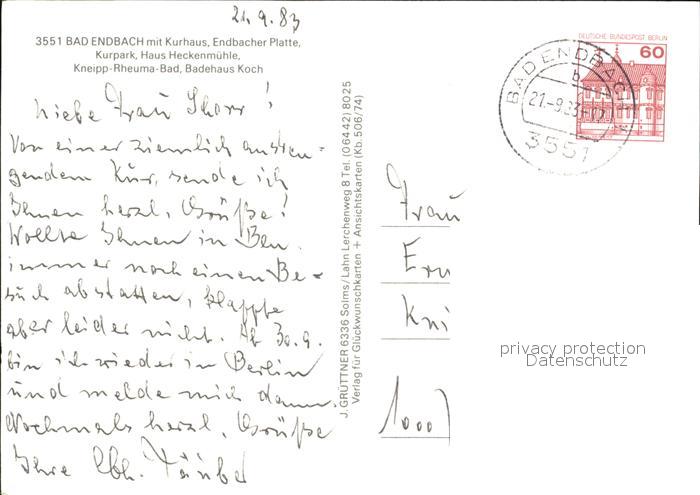 21.9.83
3551 BAD ENDBACH mit Kurhaus, Endbacher Platte,
Kurpark, Haus Heckenmühle,
Kneipp-Rheuma-Bad, Badehaus Koch
DEUTSCHE BUNDESPOST BERLIN
60
BAD ENDBACH
b
21.-9.83-17
3551
Liebe Frau !
Von einer ziemlich anstren-
gendem Kur, sende ich
Ihnen herzl. Grüße!
Wollte Ihnen in Bln.
immer noch einen Be-
such abstatten, klappte
aber leider nicht. Ab 30.9.
bin ich wieder in Berlin
und melde mich dann.
Nochmals herzl. Grüße
Ihre
J. GRÜTTNER 6336 Solms/Lahn Lerchenweg 8 Tel. (06442) 8025
Verlag für Glückwunschkarten + Ansichtskarten (Kb. 506/74)
Frau
Ern
Kni
1000
privacy protection
Datenschutz